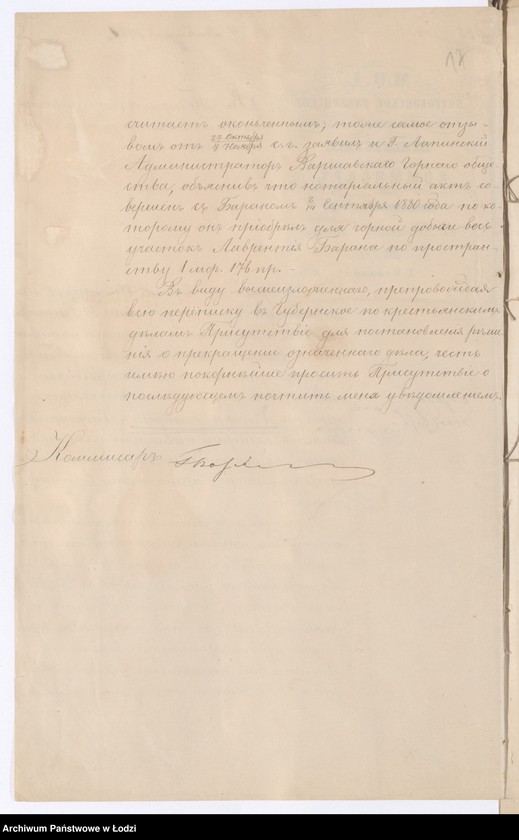 считаетъ оконченнымъ; тоже самое отзы-
вомъ отъ 22 Октября/3 Ноября с.г. заявилъ и Г. Лапинскій
Администраторъ Варшавскаго Горнаго обще-
ства, объяснивъ что нотаріальный актъ со-
вершенъ съ Бараномъ 2/14 Сентября 1880 года по ко-
торому онъ пріобрѣлъ для горной добычи весь
участокъ Лаврентія Барана по простран-
ству 1 мор. 176 пр. -
Въ виду вышеизложеннаго, препровождая
всю переписку въ Губернское по крестьянскимъ
дѣламъ Присутствіе для постановленія рѣше
нія о прекращеніи означеннаго дѣла, честь
имѣю покорнѣйше просить Присутствіе о
послѣдующемъ почтить меня увѣдомленіемъ.
Коммисаръ
Archiwum Państwowe w Łodzi